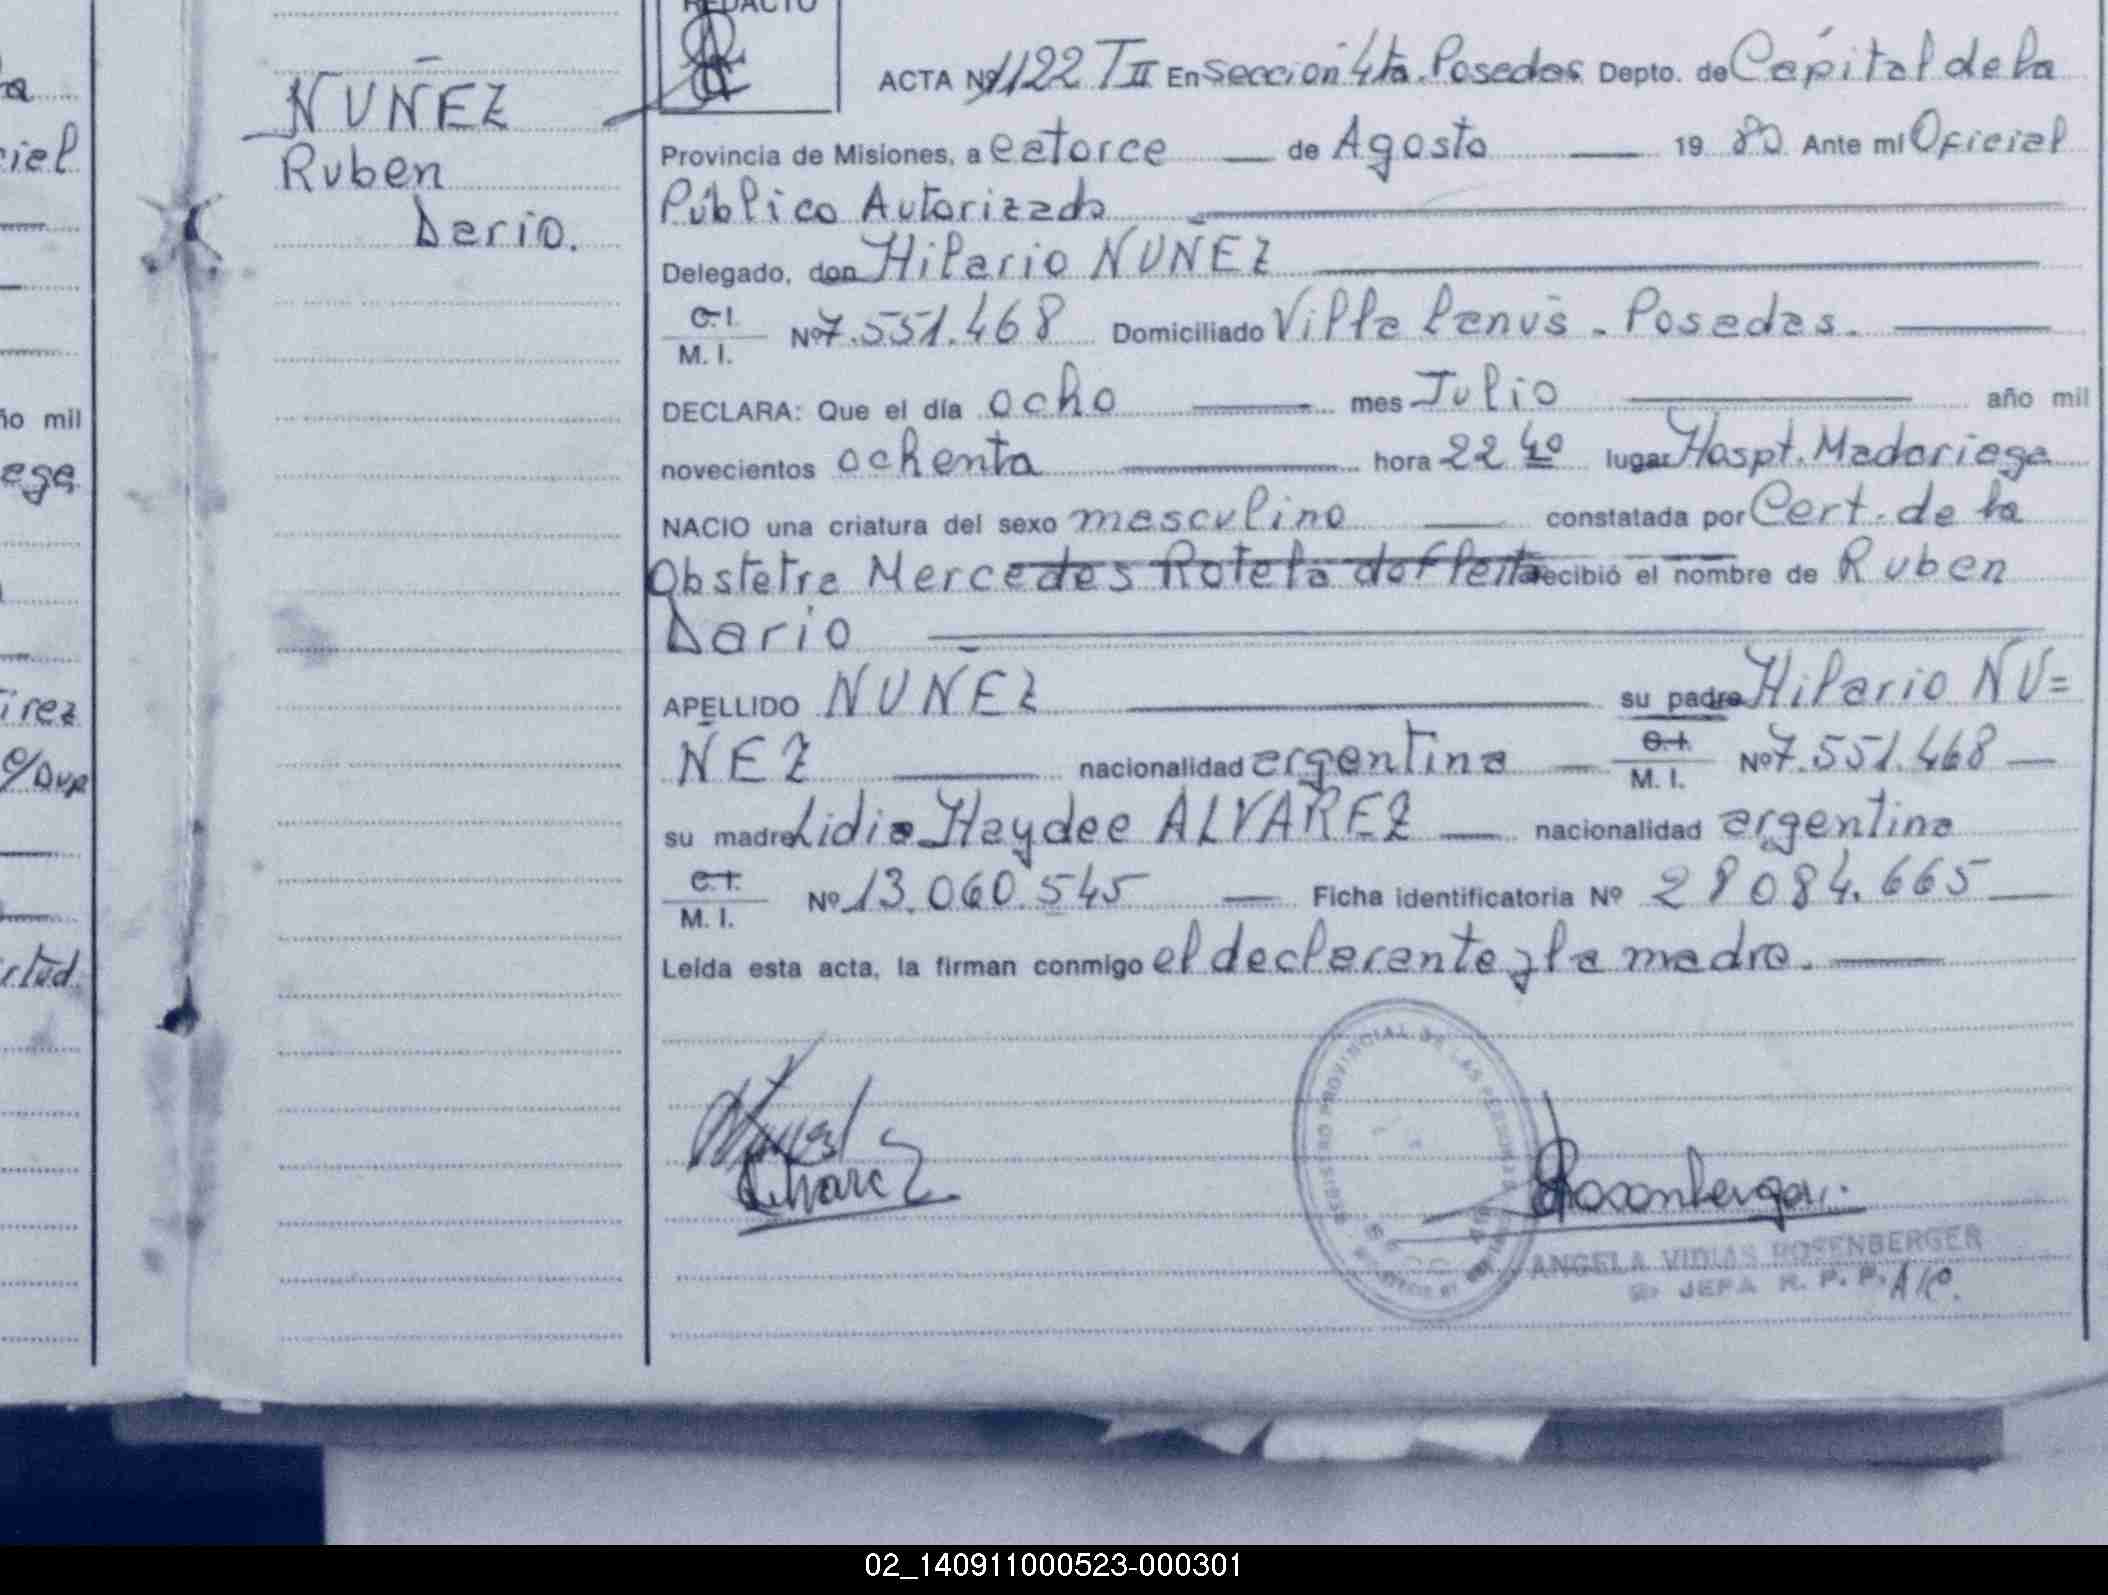 NUÑEZ
Ruben
Dario.
REDACTO
ACTA Nº 1122 T II En Seccion 4ta. Posadas Depto. de Capital de la
Provincia de Misiones, a catorce de Agosto 19 80 Ante mi Oficial
Público Autorizado
Delegado, don Hilario NUÑEZ
C.I.
M. I. Nº 7.551.468 Domiciliado Villa Lanús - Posadas.
DECLARA: Que el día ocho mes Julio año mil
novecientos ochenta hora 22 40 lugar Hospt. Madariaga
NACIO una criatura del sexo masculino constatada por Cert. de la
Obstetra Mercedes Rotela de Fleita recibió el nombre de Ruben
Dario
APELLIDO NUÑEZ su padre Hilario NU=
ÑEZ nacionalidad argentina C.I. M. I. Nº 7.551.468
su madre Lidia Haydee ALVAREZ nacionalidad argentina
C.I.
M. I. Nº 13.060.545 Ficha identificatoria Nº 28084.665
Leída esta acta, la firman conmigo el declarante y la madre.
REGISTRO PROVINCIAL DE LAS PERSONAS
Rosenberger
ANGELA VIDIAS ROSENBERGER
JEFA R. P. P. A/C.
02_140911000523-000301